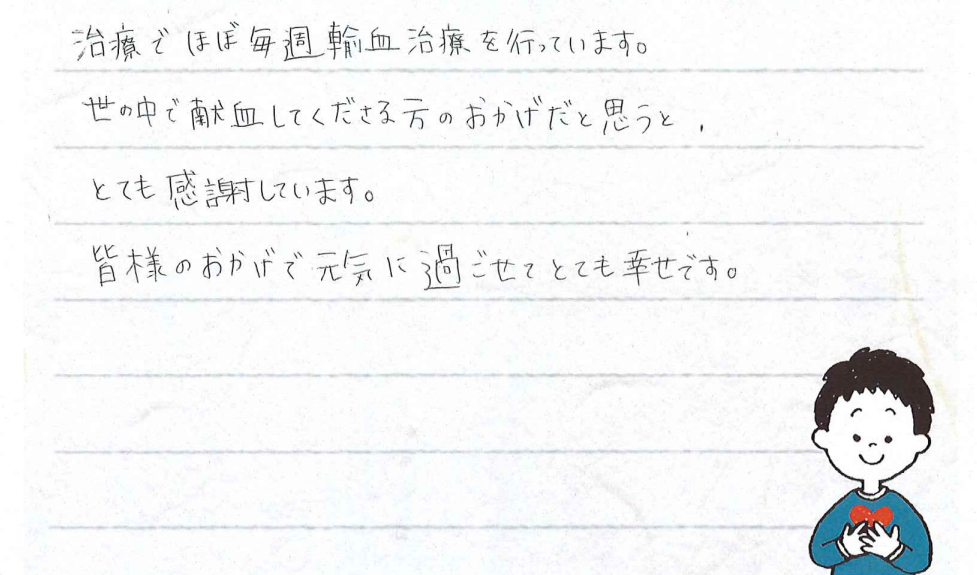 治療でほぼ毎週輸血治療を行っています。
世の中で献血してくださる方のおかげだと思うと、
とても感謝しています。
皆様のおかげで元気に過ごせてとても幸せです。